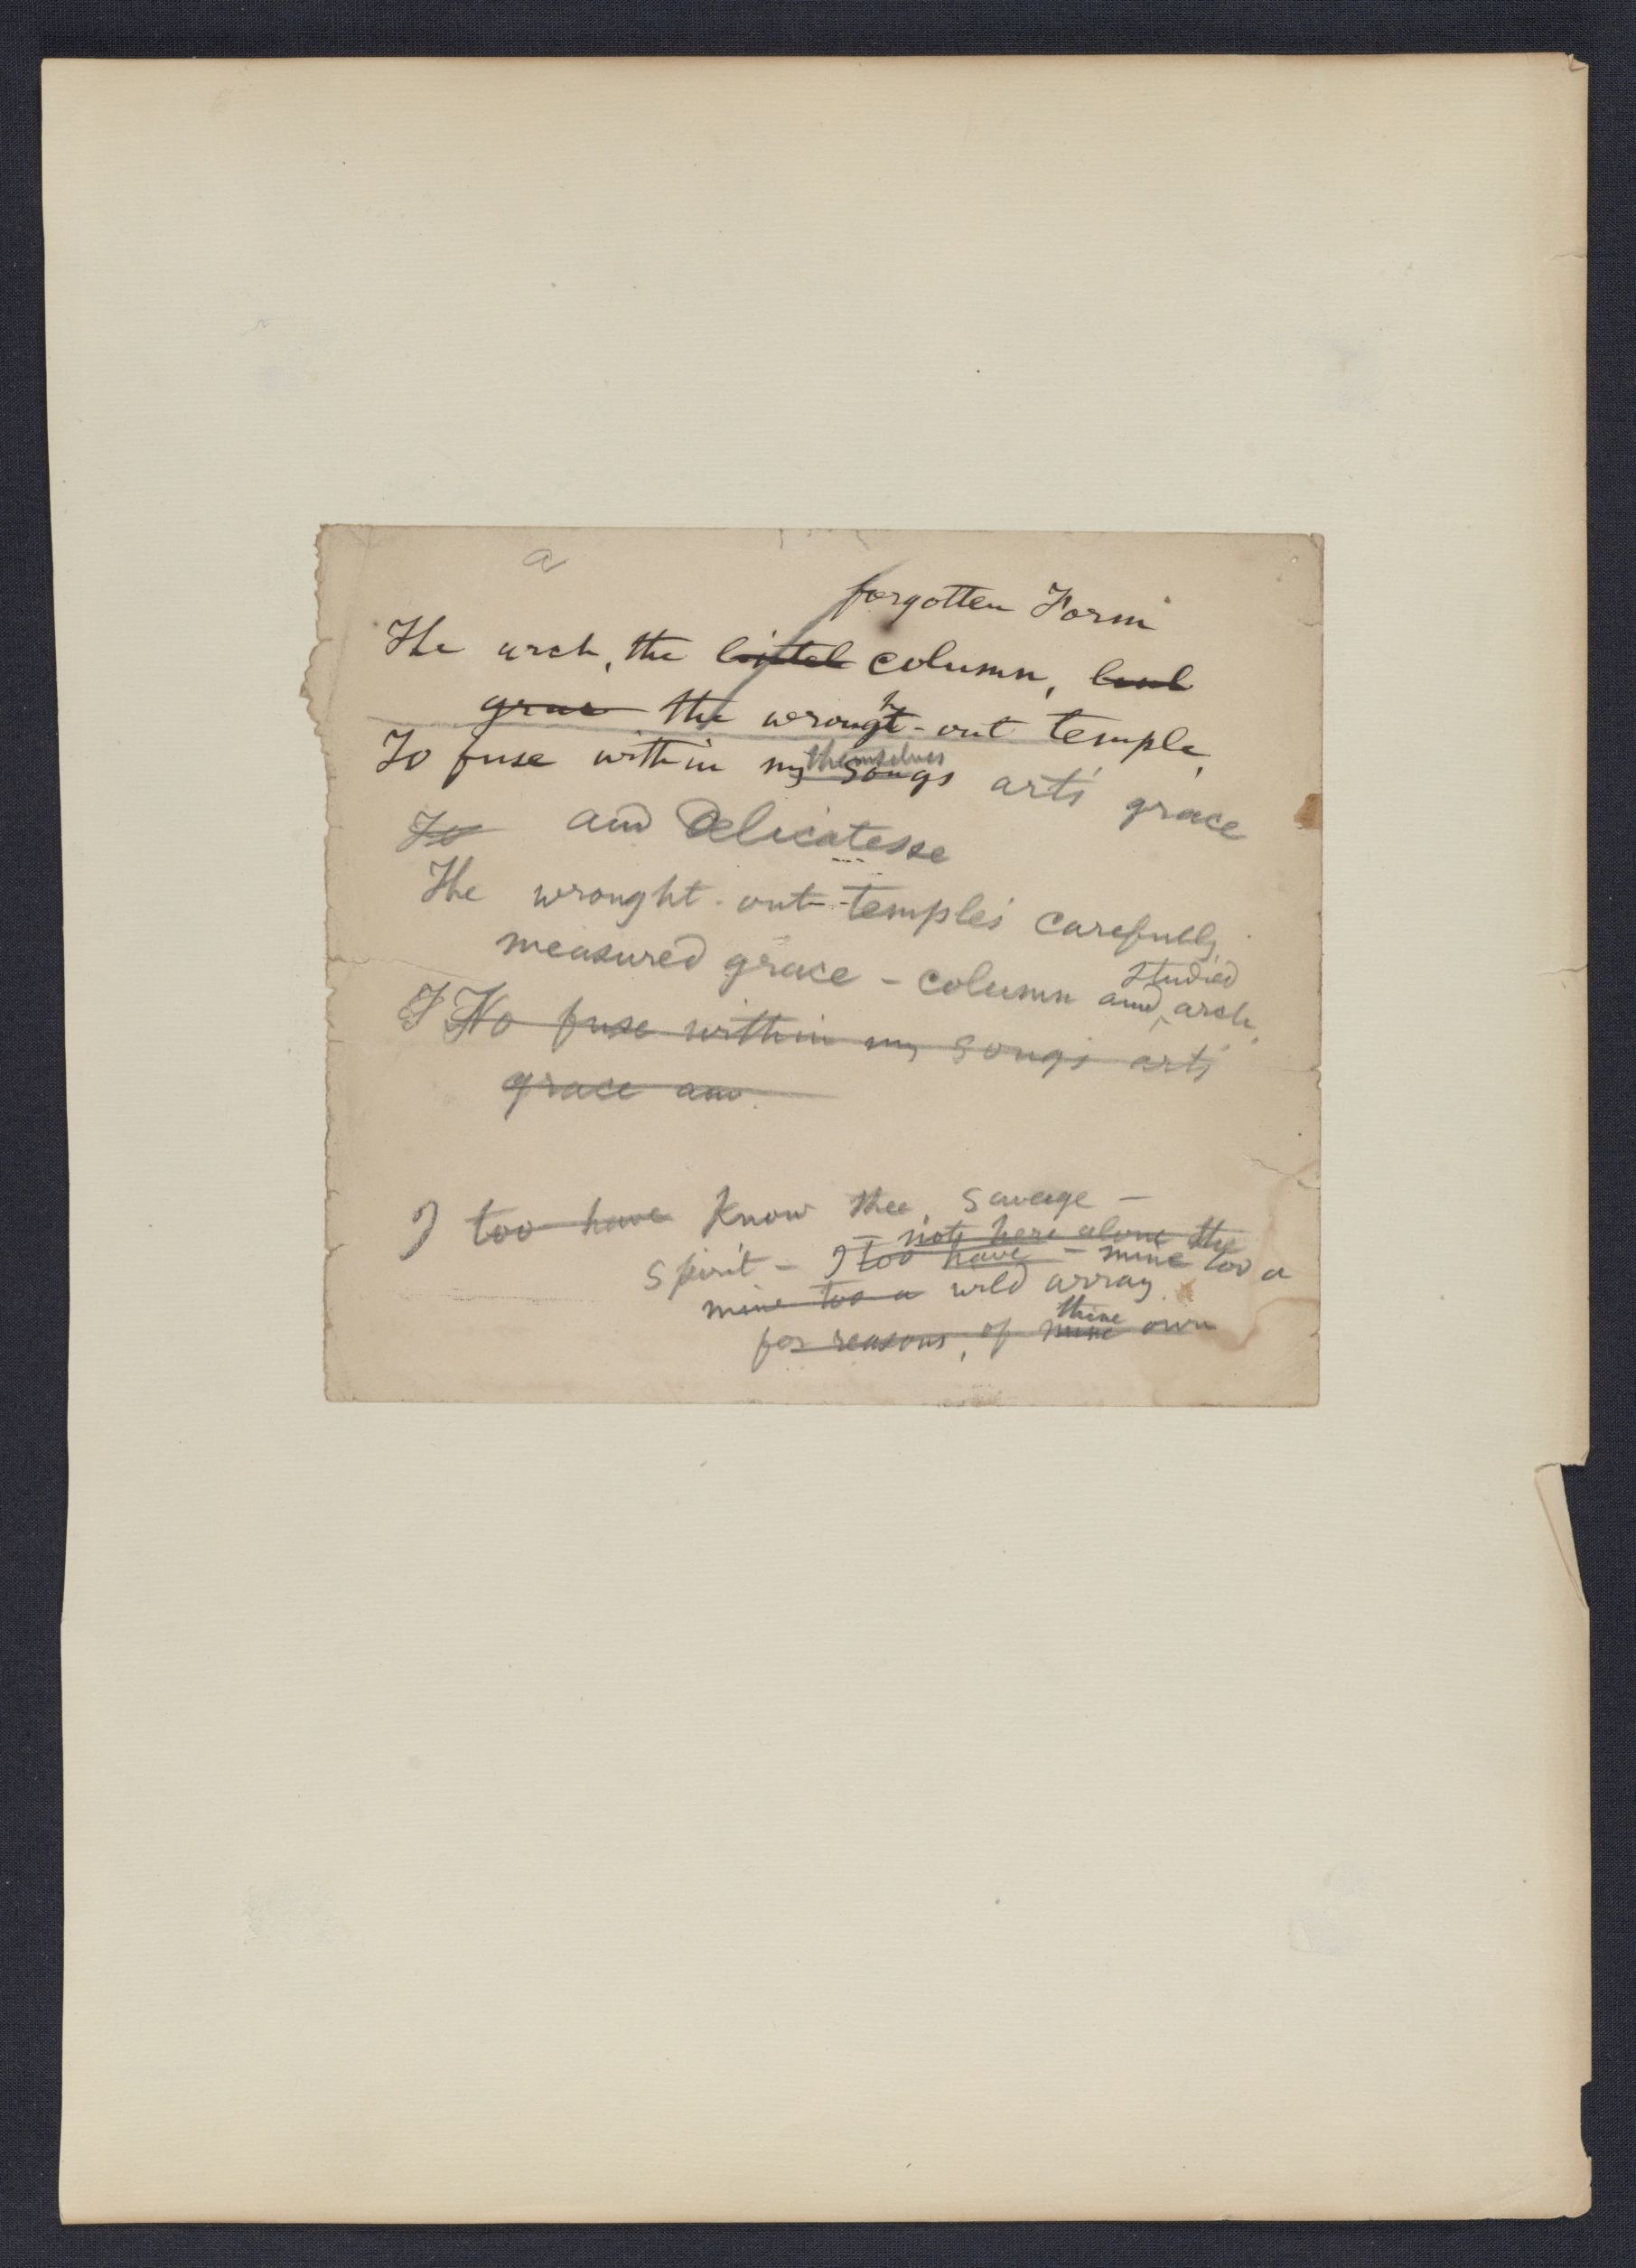 a
forgotten Form
The arch, the lintel column,
grac the wrought-out temple,
themselves
To fuse within my songs art's grace
To and Delicatesse
The wrought-out temple's carefully
measured grace – column and studied arch,
To fuse within my songs art's
grace and
I too have know thee, Savage –
– not here alone the
spirit – I too have – mine too a
mine too a wild array
thine
for reasons, of mine own